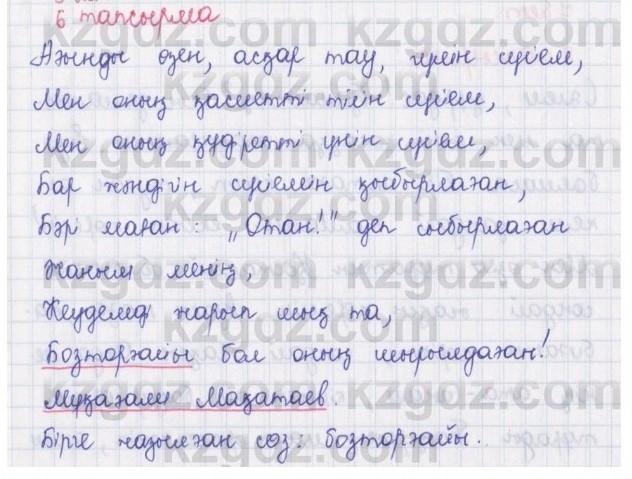 6 тапсырма
Ағынды өзен, асқар тау, иреін сүйем,
Мен оның қасиетті тілін сүйем,
Мен оның құдіретті үнін сүйем,
Бар жәндігін сүйемін қыбырлаған,
Бәрі маған: „Отан!" деп сыбырлаған
Жаным менің,
Жеудемді жарып шық та,
Бозторғайы бол оның шырылдаған!
Мұқағали Мақатаев.
Бірге жазылған сөз: бозторғайы.